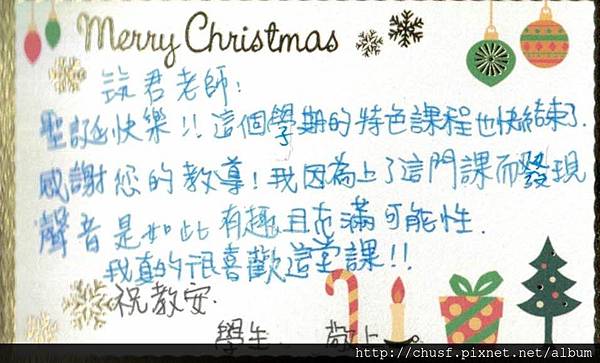 Merry Christmas
筑君老師：
聖誕快樂！！這個學期的特色課程也快結束了．
感謝您的教導！我因為上了這門課而發現
聲音是如此有趣且充滿可能性．
我真的很喜歡這堂課！！
祝教安．
學生． 敬上
http://chusf.pixnet.net/album